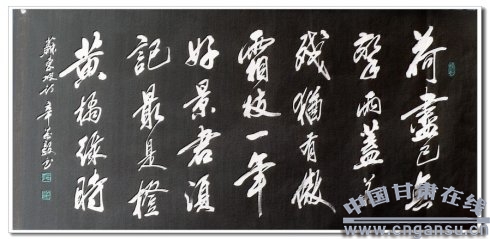 荷盡已無
擎雨盖菊
残猶有傲
霜枝一年
好景君須
記最是橙
黄橘绿時
蘇東坡诗 辛
中国甘肃在线
www.cngansu.cn